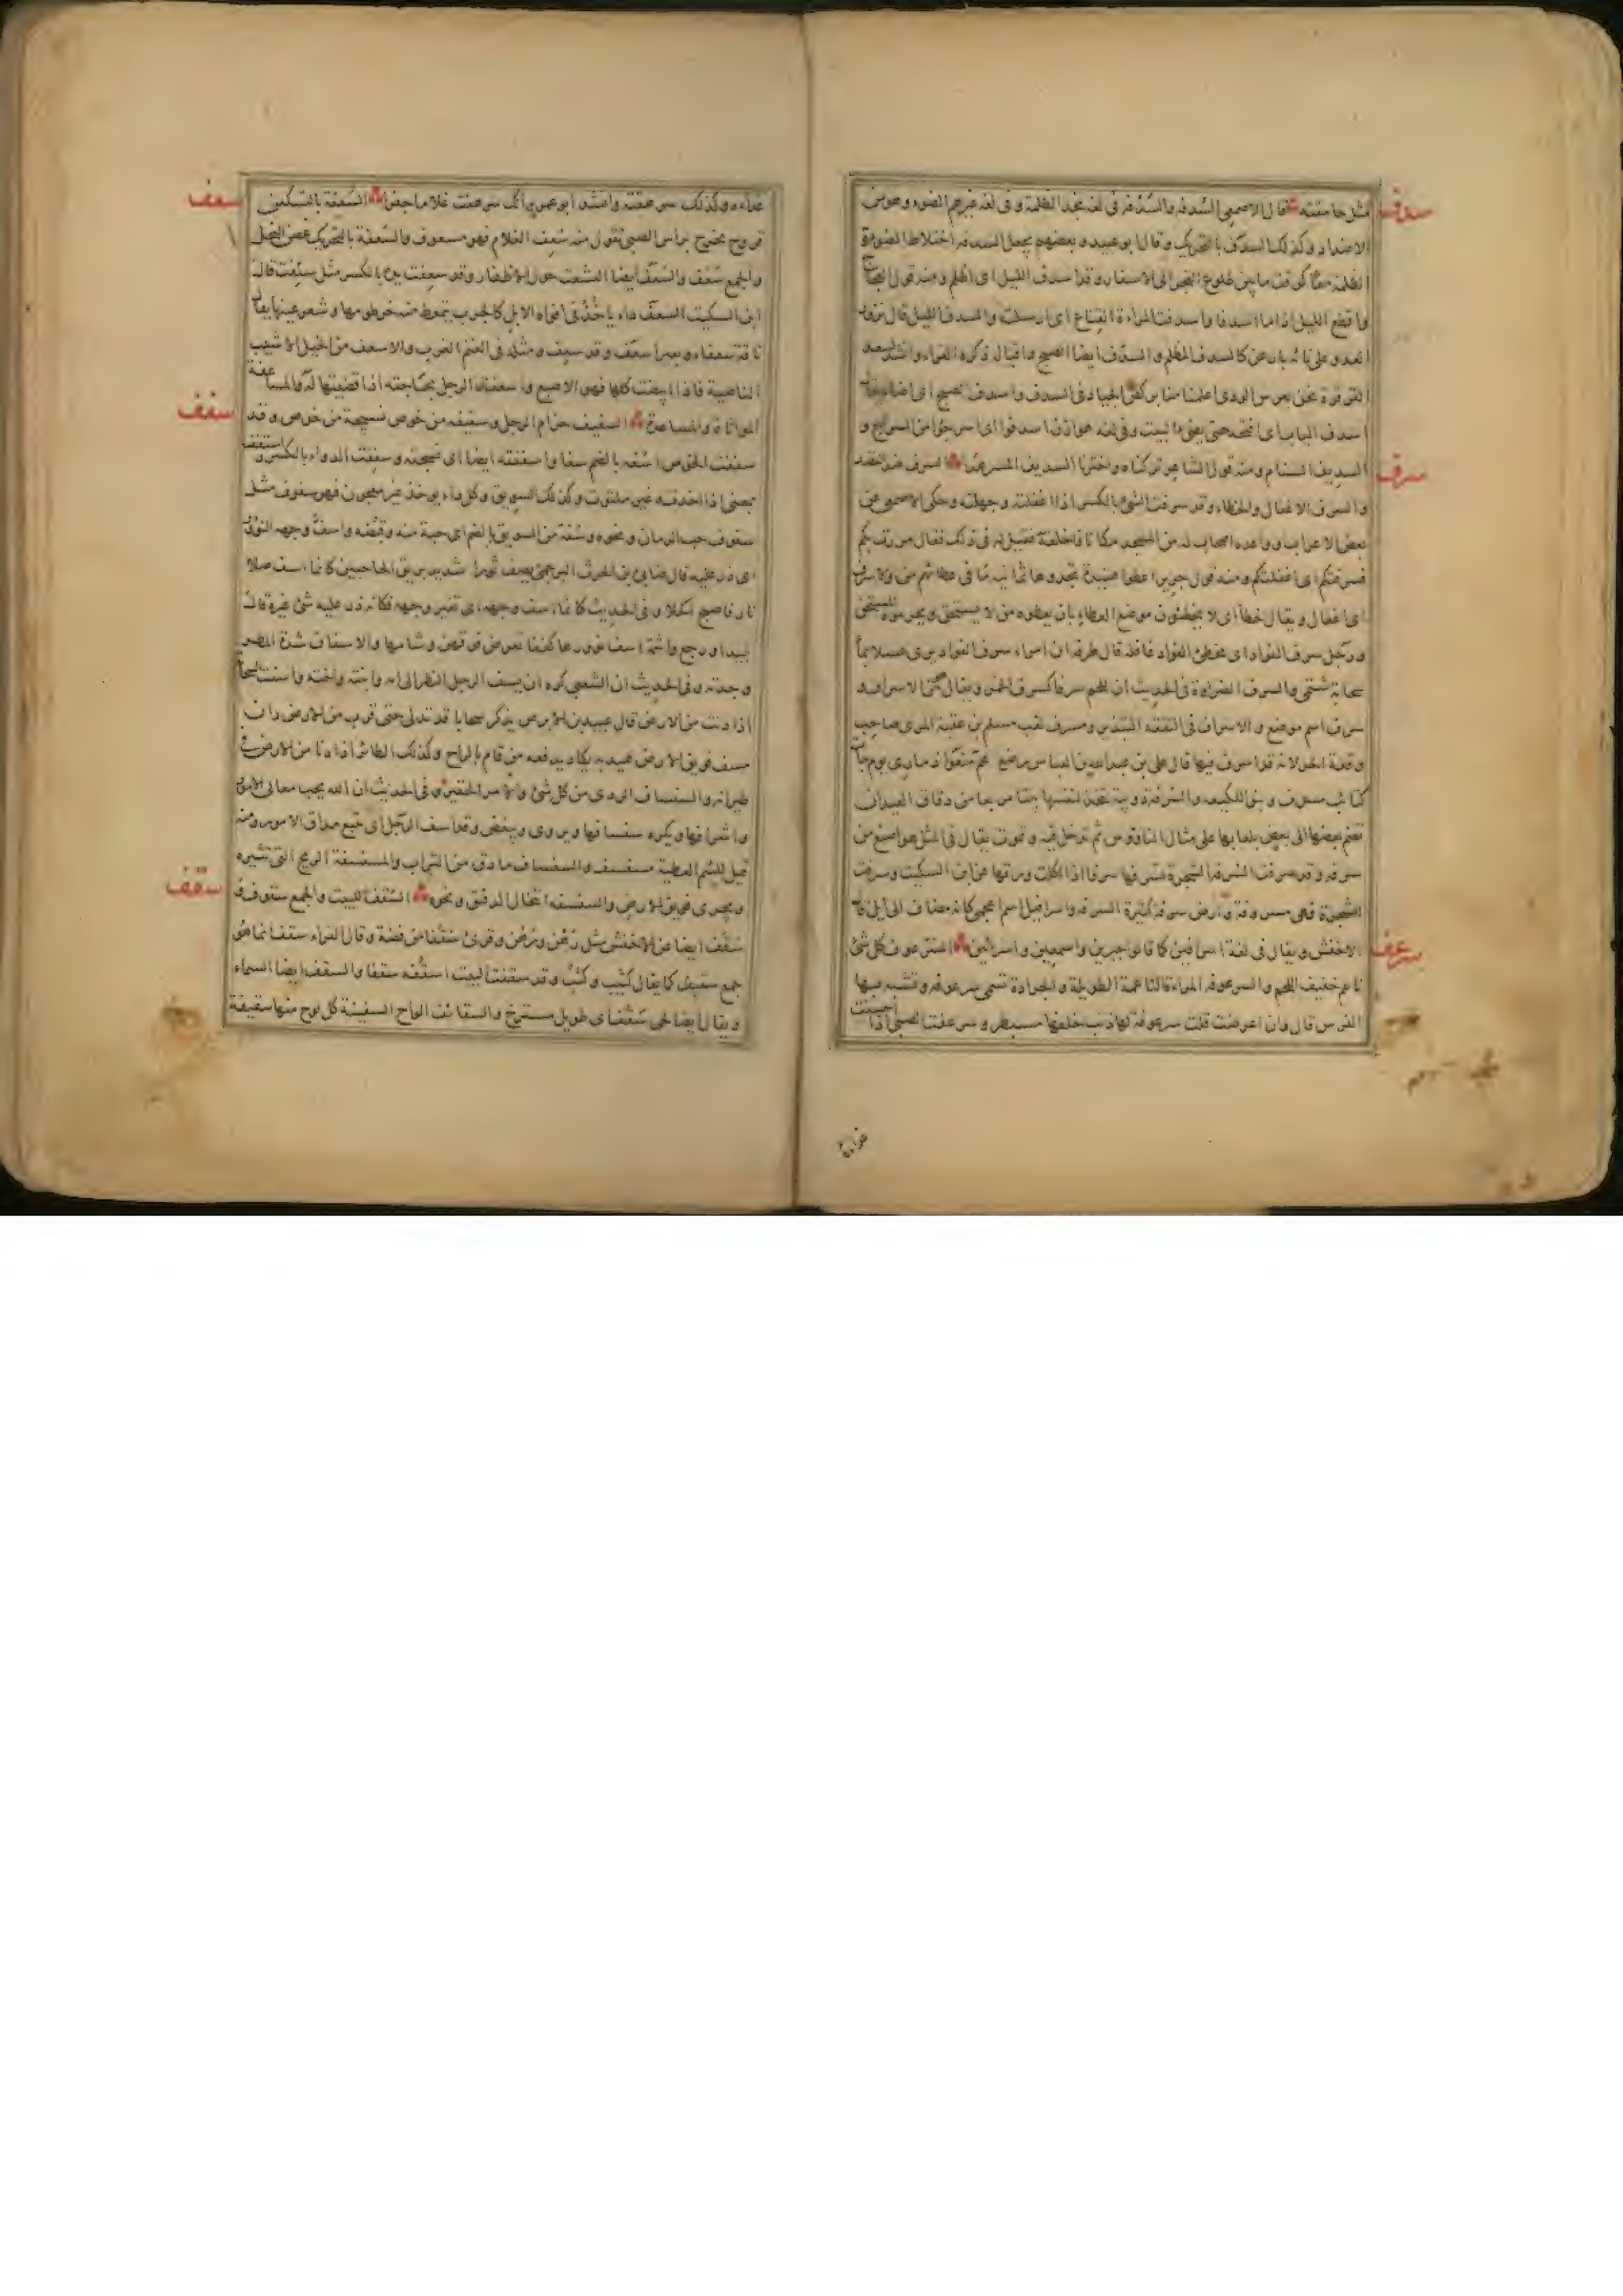 سدف
مثل خاصفته قال الاصمعي السدفة والسدفة في لغة نجد الظلمة وفي لغة غيرهم الضوء وهو من
الاضداد وكذلك السدف بالتحريك وقال ابو عبيد وبعضهم يجعل السدفة اختلاط الضوء و
الظلمة معا كوقت ما بين طلوع الفجر الى الاسفار وقد اسدف الليل اى اظلم ومنه قول العجاج
واقطع الليل اذا ما اسدفا واسدفت المراءة القناع اى ارسلته والسدف الليل قال
على كالسدف المظلم والسدف ايضا الصبح واقبال ذكره الفراء وانشد لسعد
القرقرة نحن بغرس الودى اعلمنا منا بركض الجياد فى السدف واسدف الصبح اى اضاء يقال
اسدف الباب اى افتحه حتى يضئ البيت وفى لغة هوازن اسدفوا اى اسرجوا من السراج و
سرف
السديف السنام ومنه قول الشاعر السديف المسرهد السرف ضد القصد
والسرف الاغفال والخطاء وقد سرفت الشئ بالكسر اذا اغفلته وجهلته وحكى الاصمعى عن
بعض الاعراب وواعده اصحاب له من المسجد مكانا فاخلفهم فقيل له فى ذلك فقال مررت بكم
فسرفتكم اى اغفلتكم ومنه قول جرير اعطوا هنيدة تحدوها ثمانية ما فى عطائهم من ولا سرف
اى اغفال ويقال خطأ اى لا يخطئون موضع العطاء بان يعطوه من لا يستحق ويحرموه المستحق
ورجل سرف الفواد اى مخطئ الفواد غافله قال طرفة ان امراء سرف الفواد يرى عسلا بماء
سحابة شتمى والسرف الضراوة فى الحديث ان للحم سرفا كسرف الخمر ويقال من الاسراف و
سرف اسم موضع والاسراف فى النفقة التبذير ومسرف لقب مسلم بن عقبة المرى صاحب
وقعة الحرة لانه قد اسرف فيها قال على بن عبد الله بن العباس هم منعوا ذمارى يوم جاءت
كتائب مسرف وبنو اللكيعه والسرفة دويبة تتخذ لنفسها بيتا مربعا من دقاق العيدان
تضم بعضها الى بعض بلعابها على مثال الناوس ثم تدخل فيه وتموت يقال فى المثل هو اصنع من
سرفة وقد سرفت السرفة الشجرة تسرفها سرفا اذا اكلت ورقها عن ابن السكيت وسرفت
الشجرة فهى مسروفة وارض سرفة كثيرة السرفة واسرافيل اسم اعجمى كانه مضاف الى ايل قال
سرعف
الاخفش ويقال فى لغة اسرافين كما قالوا جبرين واسمعين واسرائين السرعوف كل شئ
ناعم خفيف اللحم والسرعوفة المراءة الناعمة الطويلة والجرادة تسمى سرعوفة وتشبه بها
الفرس قال وان اعرضت قلت سرعوفة لها ذنب خلفها مسبطر وسرعفت الصبى اذا احسنت
غذاءه
سعف
غذاءه وكذلك سرعفته وانشد ابو عمرو سرعفت غلاما جفرا السعفة بالتسكين
قروح تخرج براس الصبى تقول منه سعف الغلام فهو مسعوف والسعفة بالتحريك غصن النخل
والجمع سعف والسعف ايضا التشعث حول الاظفار وقد سعفت يده بالكسر مثل سئفت قال
ابن السكيت السعف داء ياخذ فى افواه الابل كالجرب يتمعط منه خرطومها وشعر عينها يقال
ناقة سعفاء وبعير اسعف وقد سعف ومثله فى الغنم الغرب والاسعف من الخيل الاشيب
الناصية فاذا ابيضت كلها فهو الاصبغ واسعفت الرجل بحاجته اذا قضيتها له والمساعفة
سفف
المواتاة والمساعدة السفيف حزام الرحل وسفيفه من خوص نسيجة من خوص وقد
سففت الخوص اسفه بالضم سفا واسففته ايضا اى نسجته وسففت الدواء بالكسر واستففته
بمعنى اذا اخذته غير ملتوت وكذلك السويق وكل دواء يوخذ غير معجون فهو سفوف مثل
سفوف حب الرمان ونحوه وسفة من السويق بالضم اى حبة منه وقبضه واسف وجهه النؤور
اى ذر عليه قال ضابئ بن الحرث البرجمى يصف ثورا شديد بريق الحاجبين كانما اسف صلا
نار فاصبح اكحلا وفى الحديث كانما اسف وجهه اى تغير وجهه فكانه ذر عليه شئ غيره قال
لبيد او رجع واشمة اسف نؤورها كففا تعرض فوقهن وشامها والاسفاف شدة النظر
وحدته وفى الحديث ان الشعبى كره ان يسف الرجل النظر الى امه وابنته واخته واسفت السحابة
اذا دنت من الارض قال عبيد بن الابرص يذكر سحابا قد تدلى حتى قرب من الارض دان
مسف فويق الارض هيدبه يكاد يدفعه من قام بالراح وكذلك الطائر اذا دنا من الارض فى
طيرانه والسفساف الردى من كل شئ والامر الحقير وفى الحديث ان الله يحب معالى الامور
واشرافها ويكره سفسافها ويروى ويبغض وقد اسف الرجل اى تتبع مداق الامور ومنه
قيل للئيم العطية مسفسف والسفساف ما دق من التراب والمسفسفة الريح التى تثيره
سقف
وتجرى فويق الارض والسفسفه انتخال الدقيق ونحوه السقف للبيت والجمع سقوف و
سقف ايضا عن الاخفش مثل رهن ورهن وقرئ سقفا من فضة وقال الفراء سقفا انما هو
جمع سقيف كما يقال كثيب وكثب وقد سقفت البيت اسقفه سقفا والسقف ايضا السماء
ويقال ايضا لحى سقف اى طويل مسترخ والسقائف الواح السفينة كل لوح منها سقيفة